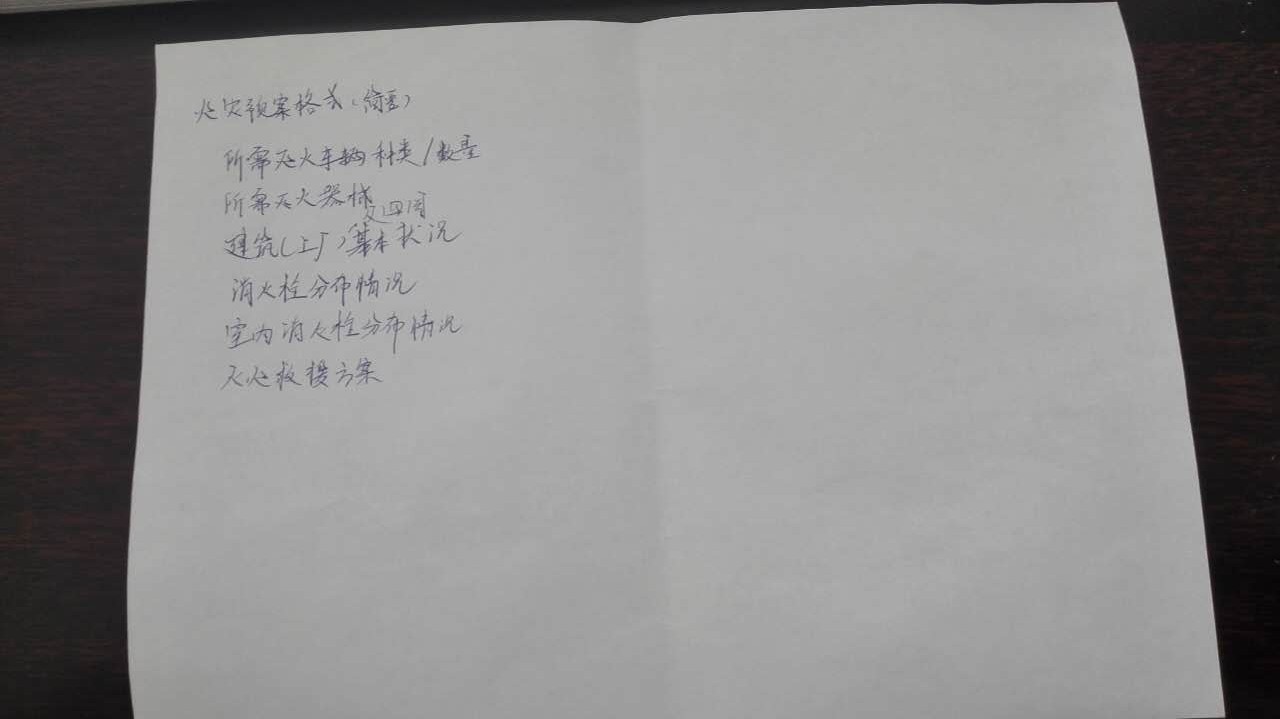 火灾预案格式(简要)
所需灭火车辆种类/数量
所需灭火器械
及四周
建筑(工厂)基本状况
消火栓分布情况
室内消火栓分布情况
灭火救援方案